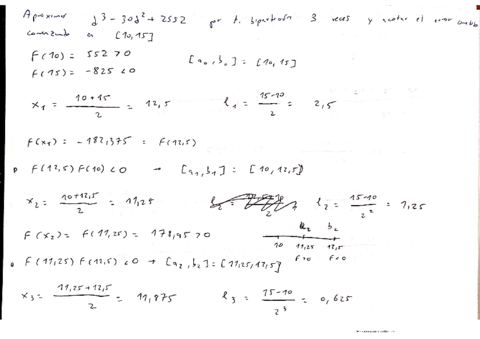 Aproximar d³ - 30d² + 2552 por t. bipartición 3 veces y acotar el error cometido
comenzando en [10,15]
F(10) = 552 > 0
F(15) = -825 < 0
[a₀, b₀] = [10, 15]
x₁ = (10+15)/2 = 12,5
l₁ = (15-10)/2 = 2,5
F(x₁) = -182,375 = F(12,5)
F(12,5) F(10) < 0 → [a₁, b₁] = [10, 12,5]
x₂ = (10+12,5)/2 = 11,25
l₂ = (15-10)/2² = 1,25
F(x₂) = F(11,25) = 178,95 > 0
a₂ b₂
10 11,25 12,5
F>0 F<0
F(11,25) F(12,5) < 0 → [a₂, b₂] = [11,25, 12,5]
x₃ = (11,25+12,5)/2 = 11,875
l₃ = (15-10)/2³ = 0,625